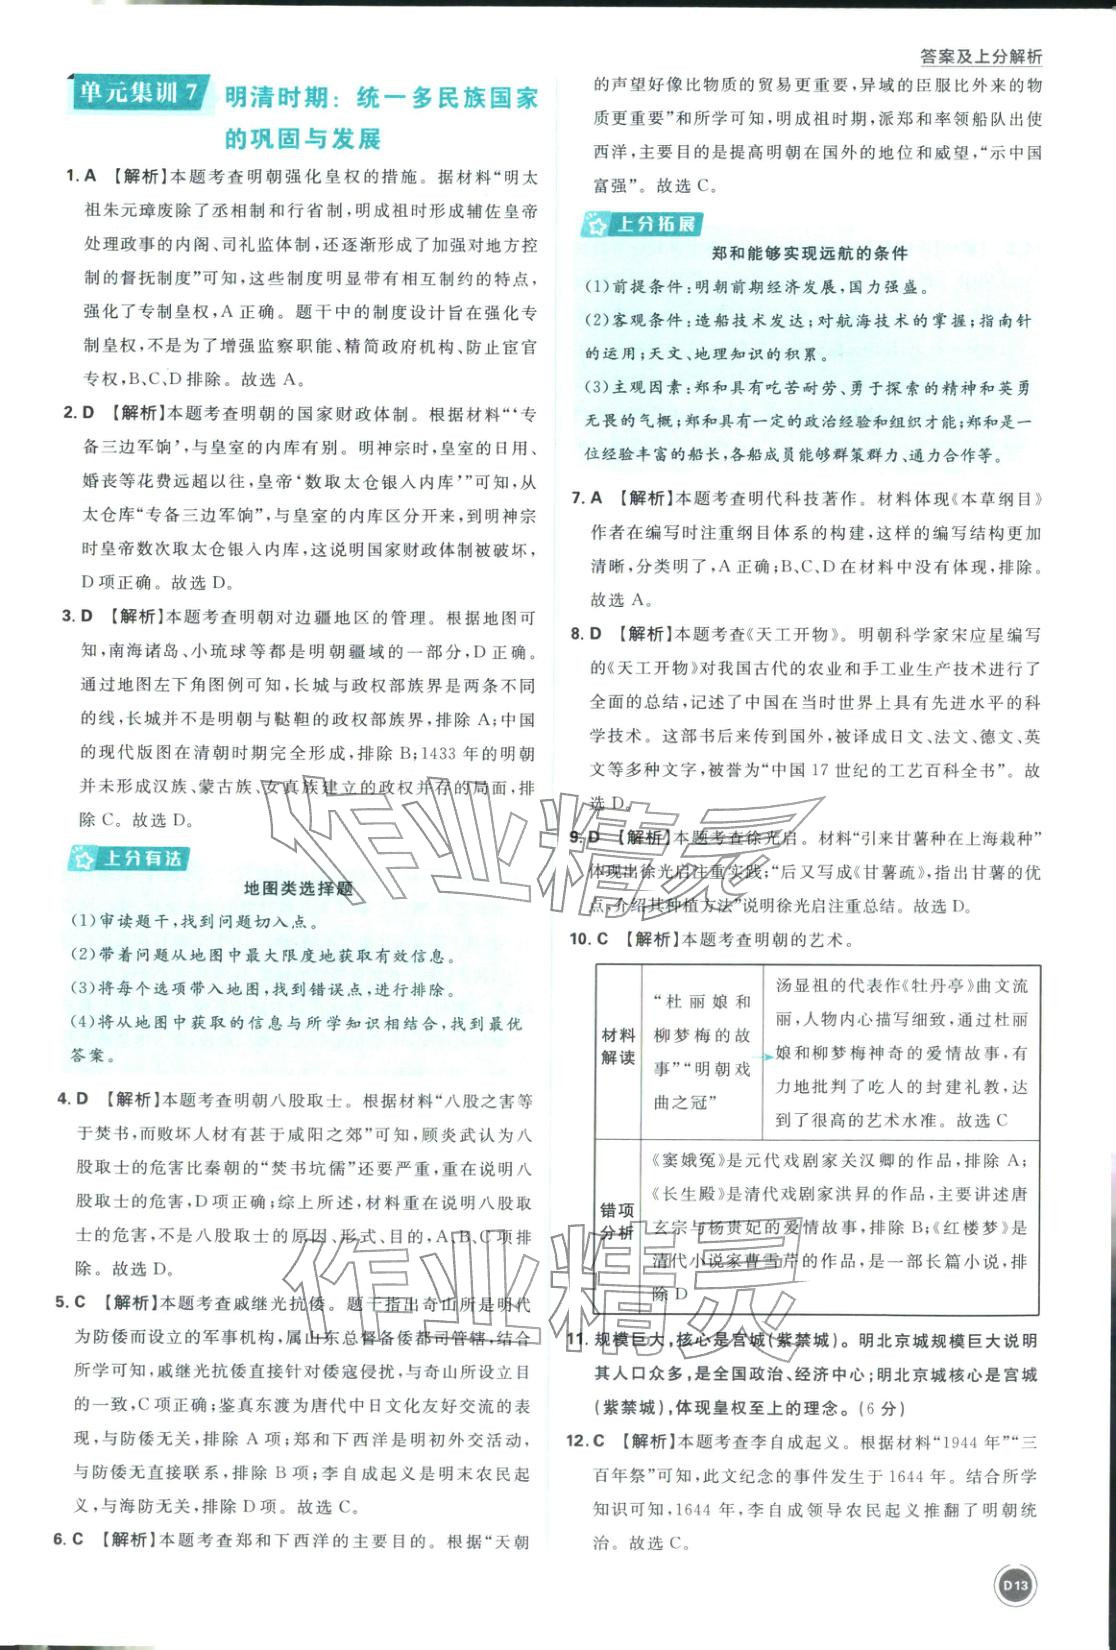 答案及上分解析
单元集训 7
明清时期：统一多民族国家
的巩固与发展
1. A 【解析】本题考查明朝强化皇权的措施。据材料“明太
祖朱元璋废除了丞相制和行省制，明成祖时形成辅佐皇帝
处理政事的内阁、司礼监体制，还逐渐形成了加强对地方控
制的督抚制度”可知，这些制度明显带有相互制约的特点，
强化了专制皇权，A 正确。题干中的制度设计旨在强化专
制皇权，不是为了增强监察职能、精简政府机构、防止宦官
专权，B、C、D 排除。故选 A。
2. D 【解析】本题考查明朝的国家财政体制。根据材料“‘专
备三边军饷’，与皇室的内库有别。明神宗时，皇室的日用、
婚丧等花费远超以往，皇帝‘数取太仓银入内库’”可知，从
太仓库“专备三边军饷”，与皇室的内库区分开来，到明神宗
时皇帝数次取太仓银入内库，这说明国家财政体制被破坏，
D 项正确。故选 D。
3. D 【解析】本题考查明朝对边疆地区的管理。根据地图可
知，南海诸岛、小琉球等都是明朝疆域的一部分，D 正确。
通过地图左下角图例可知，长城与政权部族界是两条不同
的线，长城并不是明朝与鞑靼的政权部族界，排除 A；中国
的现代版图在清朝时期完全形成，排除 B；1433 年的明朝
并未形成汉族、蒙古族、女真族建立的政权并存的局面，排
除 C。故选 D。
上分有法
地图类选择题
(1)审读题干，找到问题切入点。
(2)带着问题从地图中最大限度地获取有效信息。
(3)将每个选项带入地图，找到错误点，进行排除。
(4)将从地图中获取的信息与所学知识相结合，找到最优
答案。
4. D 【解析】本题考查明朝八股取士。根据材料“八股之害等
于焚书，而败坏人材有甚于咸阳之郊”可知，顾炎武认为八
股取士的危害比秦朝的“焚书坑儒”还要严重，重在说明八
股取士的危害，D 项正确；综上所述，材料重在说明八股取
士的危害，不是八股取士的原因、形式、目的，A、B、C 项排
除。故选 D。
5. C 【解析】本题考查戚继光抗倭。题干指出奇山所是明代
为防倭而设立的军事机构，属山东总督备倭都司管辖，结合
所学可知，戚继光抗倭直接针对倭寇侵扰，与奇山所设立目
的一致，C 项正确；鉴真东渡为唐代中日文化友好交流的表
现，与防倭无关，排除 A 项；郑和下西洋是明初外交活动，
与防倭无直接联系，排除 B 项；李自成起义是明末农民起
义，与海防无关，排除 D 项。故选 C。
6. C 【解析】本题考查郑和下西洋的主要目的。根据“天朝
的声望好像比物质的贸易更重要，异域的臣服比外来的物
质更重要”和所学可知，明成祖时期，派郑和率领船队出使
西洋，主要目的是提高明朝在国外的地位和威望，“示中国
富强”。故选 C。
上分拓展
郑和能够实现远航的条件
(1)前提条件：明朝前期经济发展，国力强盛。
(2)客观条件：造船技术发达；对航海技术的掌握；指南针
的运用；天文、地理知识的积累。
(3)主观因素：郑和具有吃苦耐劳、勇于探索的精神和英勇
无畏的气概；郑和具有一定的政治经验和组织才能；郑和是一
位经验丰富的船长，各船成员能够群策群力、通力合作等。
7. A 【解析】本题考查明代科技著作。材料体现《本草纲目》
作者在编写时注重纲目体系的构建，这样的编写结构更加
清晰，分类明了，A 正确；B、C、D 在材料中没有体现，排除。
故选 A。
8. D 【解析】本题考查《天工开物》。明朝科学家宋应星编写
的《天工开物》对我国古代的农业和手工业生产技术进行了
全面的总结，记述了中国在当时世界上具有先进水平的科
学技术。这部书后来传到国外，被译成日文、法文、德文、英
文等多种文字，被誉为“中国 17 世纪的工艺百科全书”。故
选 D。
9. D 【解析】本题考查徐光启。材料“引来甘薯种在上海栽种”
体现出徐光启注重实践；“后又写成《甘薯疏》，指出甘薯的优
点，介绍其种植方法”说明徐光启注重总结。故选 D。
10. C 【解析】本题考查明朝的艺术。
材料
解读
“杜丽娘和
柳梦梅的故
事”“明朝戏
曲之冠”
汤显祖的代表作《牡丹亭》曲文流
丽，人物内心描写细致，通过杜丽
娘和柳梦梅神奇的爱情故事，有
力地批判了吃人的封建礼教，达
到了很高的艺术水准。故选 C
错项
分析
《窦娥冤》是元代戏剧家关汉卿的作品，排除 A；
《长生殿》是清代戏剧家洪昇的作品，主要讲述唐
玄宗与杨贵妃的爱情故事，排除 B；《红楼梦》是
清代小说家曹雪芹的作品，是一部长篇小说，排
除 D
11. 规模巨大，核心是宫城(紫禁城)。明北京城规模巨大说明
其人口众多，是全国政治、经济中心；明北京城核心是宫城
(紫禁城)，体现皇权至上的理念。(6 分)
12. C 【解析】本题考查李自成起义。根据材料“1944 年”“三
百年祭”可知，此文纪念的事件发生于 1644 年。结合所学
知识可知，1644 年，李自成领导农民起义推翻了明朝统
治。故选 C。
D13
作业精灵
作业精灵